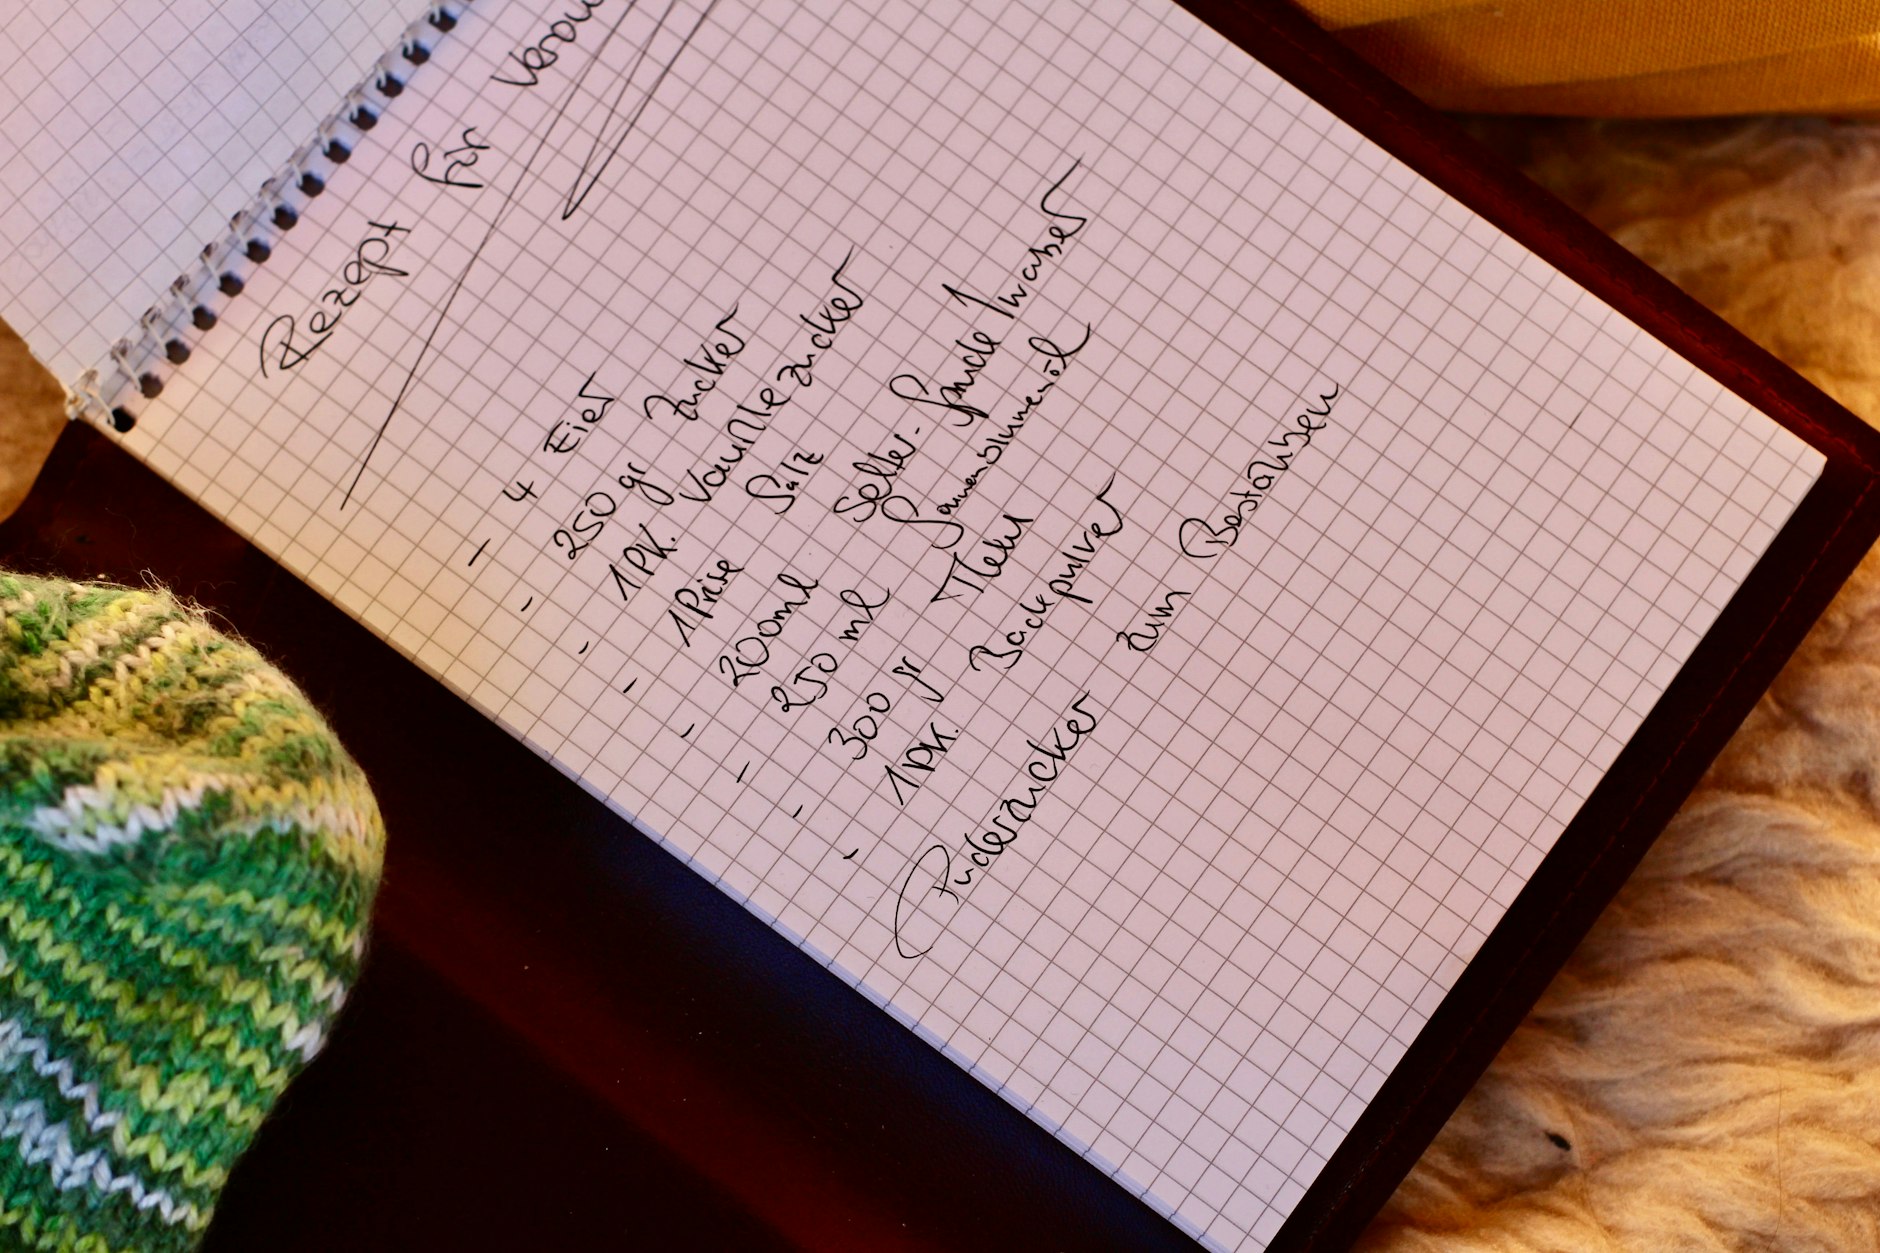 Rezept für
- 4 Eier
- 250 gr Zucker
- 1 PK. Vanillezucker
- 1 Prise Salz
- 200ml Selter-Sprudelwasser
- 250 ml Sonnenblumenöl
- 300 gr Mehl
- 1 PK. Backpulver
Puderzucker zum Bestäuben